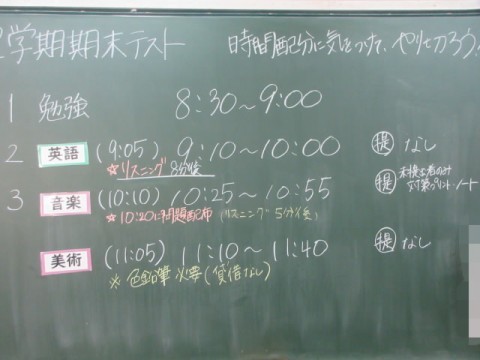 学期期末テスト 時間配分に気をつけて、やりきろう!
1 勉強 8:30~9:00
2 英語 (9:05) 9:10~10:00 提 なし
☆リスニング 8分後
3 音楽 (10:10) 10:25~10:55 提 未提出者のみ 対策プリント・ノート
☆10:20に問題配布 (リスニング 5分後)
美術 (11:05) 11:10~11:40 提 なし
※色鉛筆必要(貸借なし)